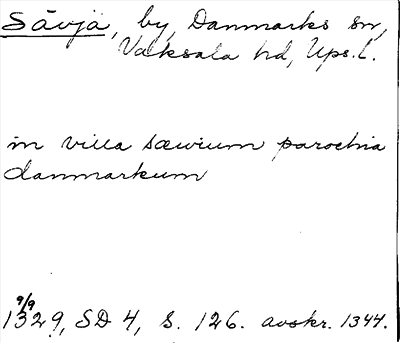 Sävjä, by, Danmarks sn,
Vaksala hd, Ups.l.
in villa sæwium parochia
danmarkum
9/9
1329, SD 4, s. 126. avskr. 1344.